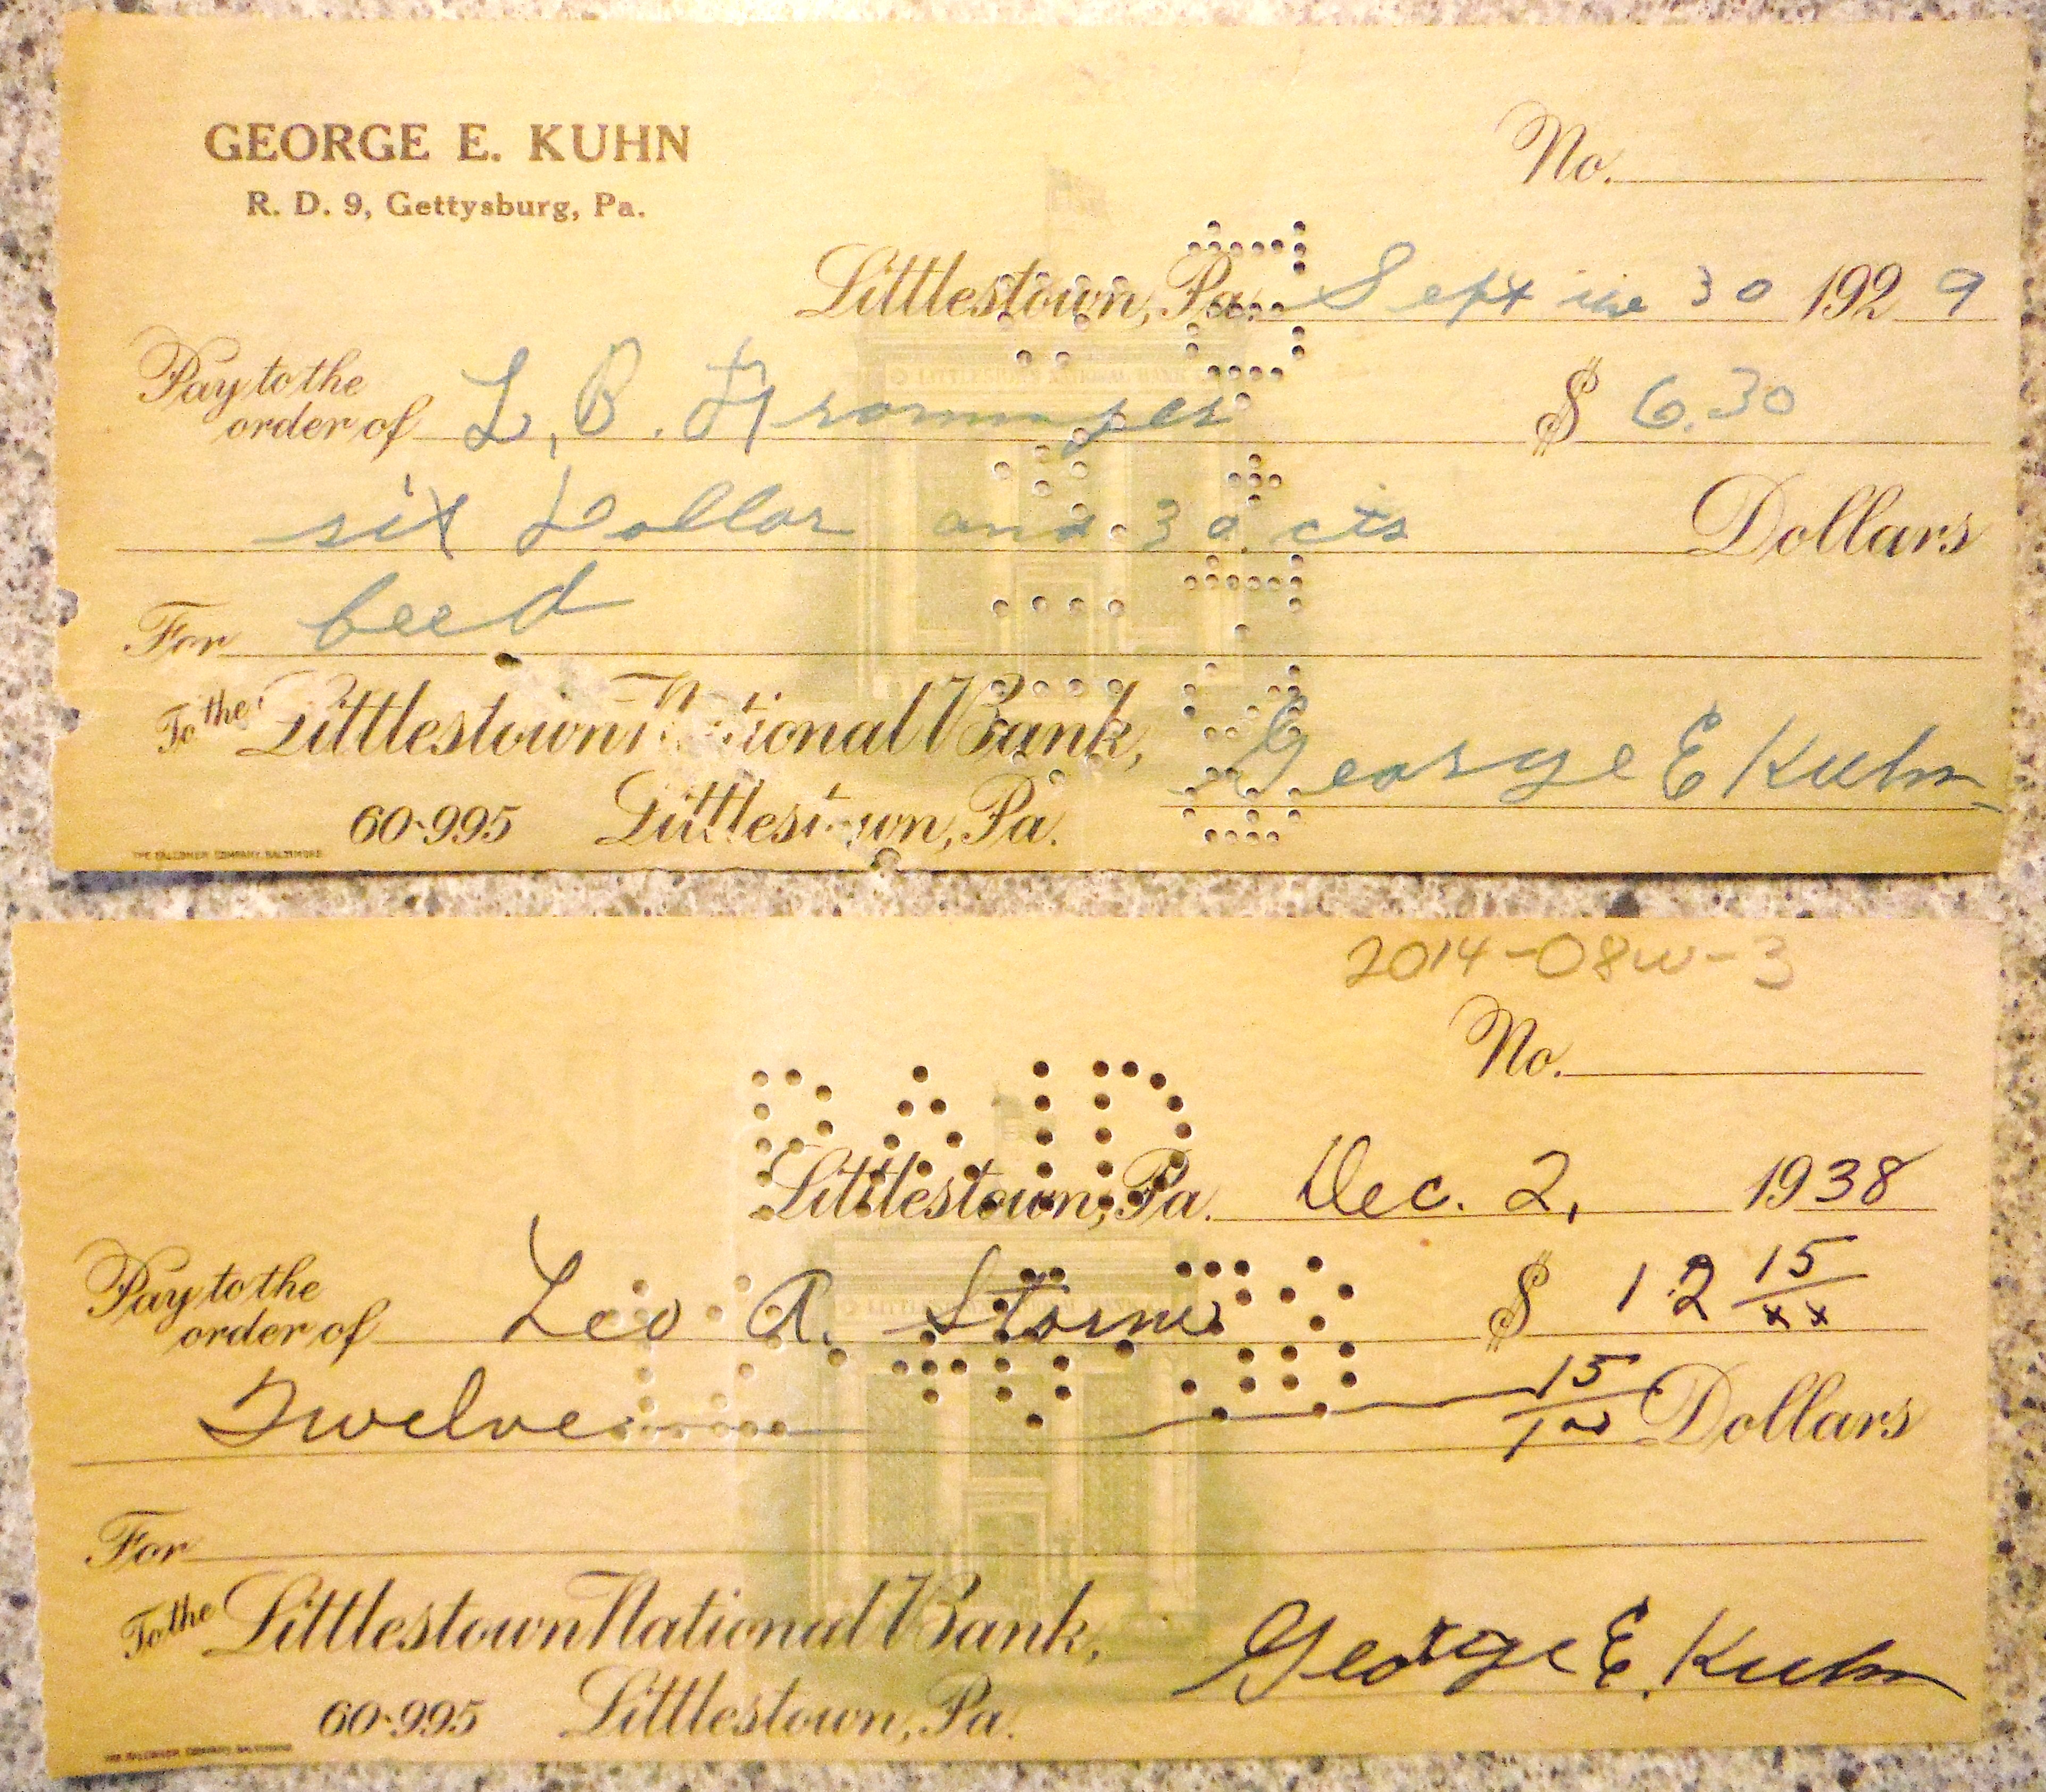 GEORGE E. KUHN
R. D. 9, Gettysburg, Pa.
No.
Littlestown, Pa. Sept 30 192 9
Pay to the
order of L. B. $ 6.30
six Dollar and 30 cts Dollars
For
To the Littlestown National Bank,
George E Kuhn
60-995 Littlestown, Pa.
THE FALCONER COMPANY, BALTIMORE
2014-08w-3
No.
PAID
Littlestown, Pa. Dec. 2, 1938
Pay to the
order of Leo A. Storm $ 12 15/xx
Twelve 15/ Dollars
For
To the Littlestown National Bank,
George E. Kuhn
60-995 Littlestown, Pa.
THE FALCONER COMPANY, BALTIMORE